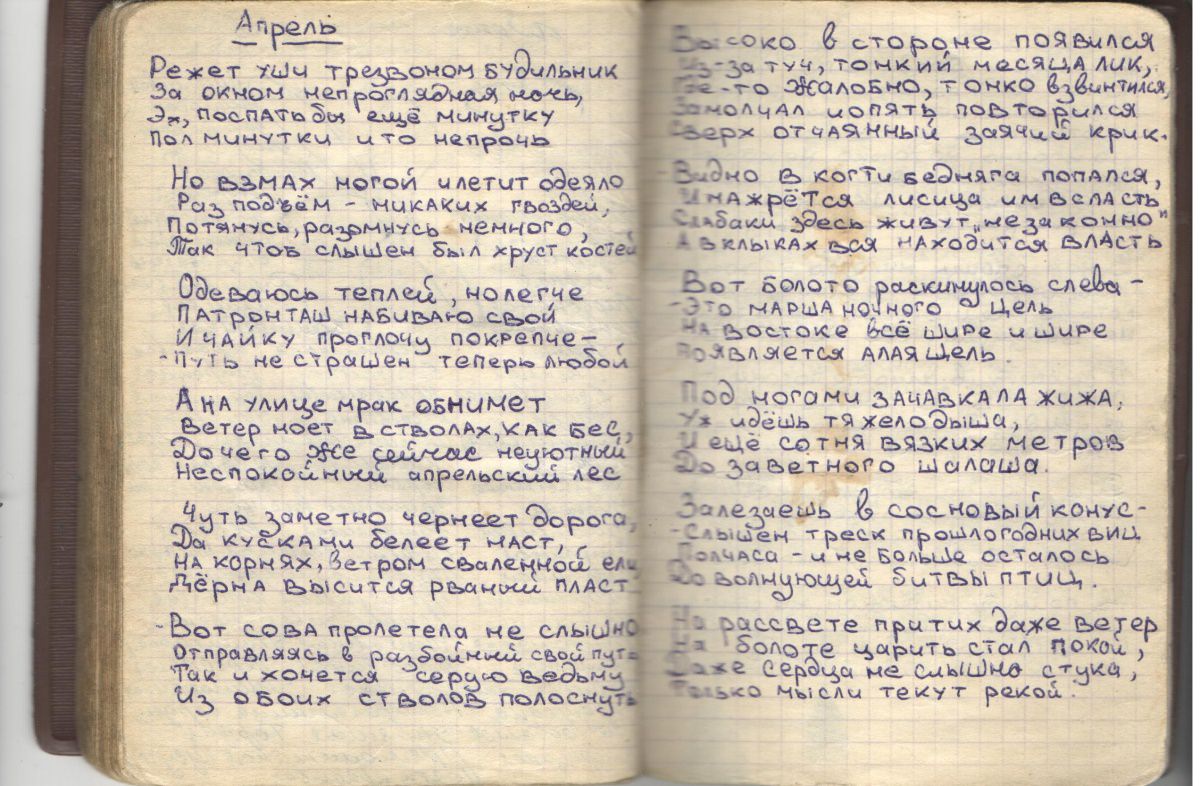 Апрель
Режет уши трезвоном будильник
За окном непроглядная ночь,
Эх, поспать бы ещё минутку
Пол минутки и то непрочь
Но взмах ногой и летит одеяло
Раз подъём - никаких гвоздей,
Потянусь, разомнусь немного,
Так чтоб слышен был хруст костей
Одеваюсь теплей, но легче
Патронташ набиваю свой
И чайку проглочу покрепче -
- Путь не страшен теперь любой
А на улице мрак обнимет
Ветер ноет в стволах, как бес,
До чего же сейчас неуютный
Неспокойный апрельский лес
Чуть заметно чернеет дорога,
Да кусками белеет наст,
На корнях, ветром сваленной ели
Дёрна высится рваный пласт
- Вот сова пролетела не слышно
Отправляясь в разбойный свой путь
Так и хочется серую ведьму
Из обоих стволов полоснуть
Высоко в стороне появился
Из-за туч, тонкий месяца лик,
Где-то жалобно, тонко взвинтился,
Замолчал и опять повторился
Сверх отчаянный заячий крик.
- Видно в когти бедняга попался,
И нажрётся лисица им всласть
Слабаки здесь живут „незаконно"
А в клыках вся находится власть
Вот болото раскинулось слева -
- Это марша ночного цель
На востоке всё шире и шире
Появляется алая щель.
Под ногами зачавкала жижа,
Уж идёшь тяжело дыша,
И ещё сотня вязких метров
До заветного шалаша.
Залезаешь в сосновый конус -
- Слышен треск прошлогодних виц
Полчаса - и не больше осталось
До волнующей битвы птиц.
На рассвете притих даже ветер
На болоте царить стал покой,
Даже сердца не слышно стука,
Только мысли текут рекой.